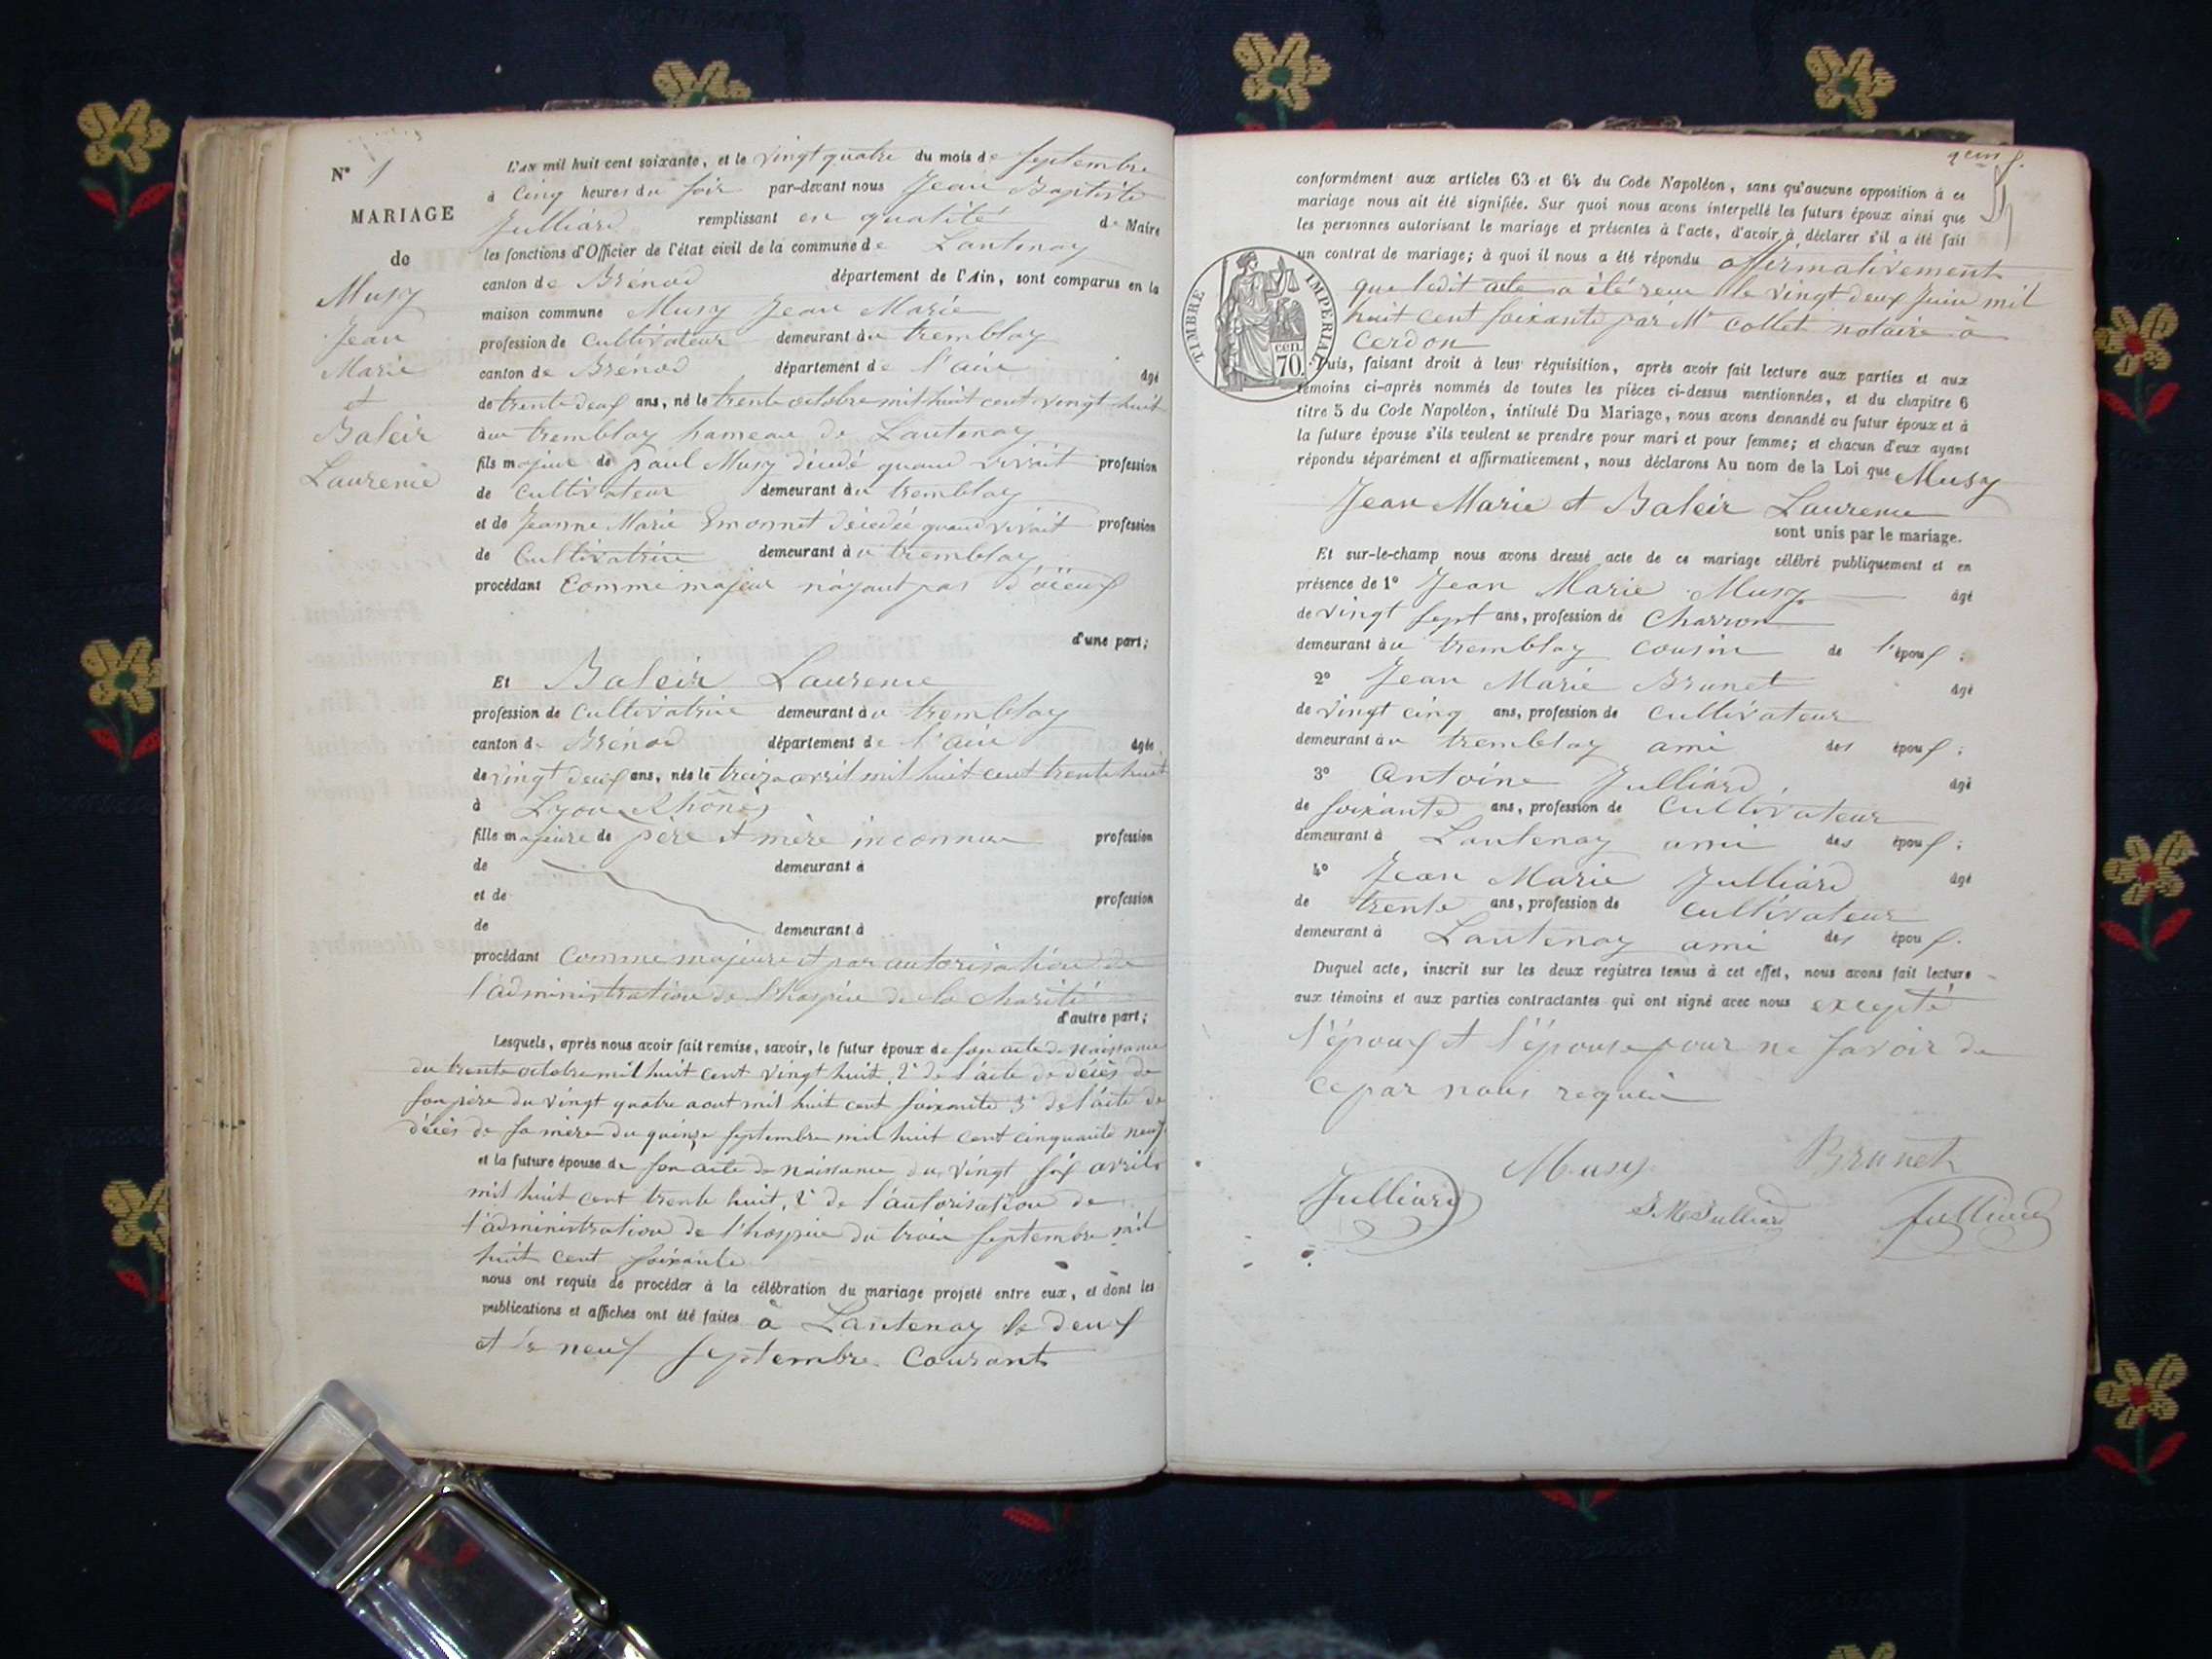 N° 1
MARIAGE
de
Musy
Jean
Marie
et
Baleir
Laurence
L'an mil huit cent soixante, et le vingt quatre du mois de septembre
à cinq heures du soir par-devant nous Jean Baptiste
Julliard remplissant en qualité de Maire
les fonctions d'Officier de l'état civil de la commune de Lantenay
canton de Brénod département de l'Ain, sont comparus en la
maison commune Musy Jean Marie
profession de cultivateur demeurant au tremblay
canton de Brénod département de l'ain âgé
de trente deux ans, né le trente octobre mil huit cent vingt huit
au tremblay hameau de Lantenay
fils majeur de paul Musy décédé quand vivait profession
de cultivateur demeurant au tremblay
et de Jeanne Marie Emonnet décédée quand vivait profession
de Cultivatrice demeurant au tremblay
procédant comme majeur n'ayant pas d'aïeux
d'une part;
Et Baleir Laurence
profession de cultivatrice demeurant au tremblay
canton de Brénod département de l'ain âgée
de vingt deux ans, née le treize avril mil huit cent trente huit
à Lyon Rhône
fille majeure de père et mère inconnus profession
de demeurant à
et de profession
de demeurant à
procédant comme majeure et par autorisation de
l'administration de l'hospice de la charité
d'autre part;
Lesquels, après nous avoir fait remise, savoir, le futur époux de son acte de naissance
du trente octobre mil huit cent vingt huit, 2° de l'acte de décès de
son père du vingt quatre aout mil huit cent soixante 3° de l'acte de
décès de sa mère du quinze septembre mil huit cent cinquante neuf
et la future épouse de son acte de naissance du vingt six avril
mil huit cent trente huit, 2° de l'autorisation de
l'administration de l'hospice du trois septembre mil
huit cent soixante
nous ont requis de procéder à la célébration du mariage projeté entre eux, et dont les
publications et affiches ont été faites à Lantenay le deux
et le neuf septembre courant
conformément aux articles 63 et 64 du Code Napoléon, sans qu'aucune opposition à ce
mariage nous ait été signifiée. Sur quoi nous avons interpellé les futurs époux ainsi que
les personnes autorisant le mariage et présentes à l'acte, d'avoir à déclarer s'il a été fait
un contrat de mariage; à quoi il nous a été répondu affirmativement
que ledit acte a été reçu le vingt deux Juin mil
huit cent soixante par Mr collet notaire à
Cerdon
TIMBRE IMPERIAL
cen. 70.
Puis, faisant droit à leur réquisition, après avoir fait lecture aux parties et aux
témoins ci-après nommés de toutes les pièces ci-dessus mentionnées, et du chapitre 6
titre 5 du Code Napoléon, intitulé Du Mariage, nous avons demandé au futur époux et à
la future épouse s'ils veulent se prendre pour mari et pour femme; et chacun d'eux ayant
répondu séparément et affirmativement, nous déclarons Au nom de la Loi que Musy
Jean Marie et Baleir Laurence
sont unis par le mariage.
Et sur-le-champ nous avons dressé acte de ce mariage célébré publiquement et en
présence de 1° Jean Marie Musy âgé
de vingt sept ans, profession de charron
demeurant au tremblay cousin de l'époux;
2° Jean Marie Brunet âgé
de vingt cinq ans, profession de cultivateur
demeurant au tremblay ami des époux;
3° Antoine Julliard âgé
de soixante ans, profession de cultivateur
demeurant à Lantenay ami des époux;
4° Jean Marie Julliard âgé
de trente ans, profession de cultivateur
demeurant à Lantenay ami des époux.
Duquel acte, inscrit sur les deux registres tenus à cet effet, nous avons fait lecture
aux témoins et aux parties contractantes qui ont signé avec nous excepté
l'époux et l'épouse pour ne savoir de
ce par nous requis
Musy Brunet
Julliard J M Julliard Julliard